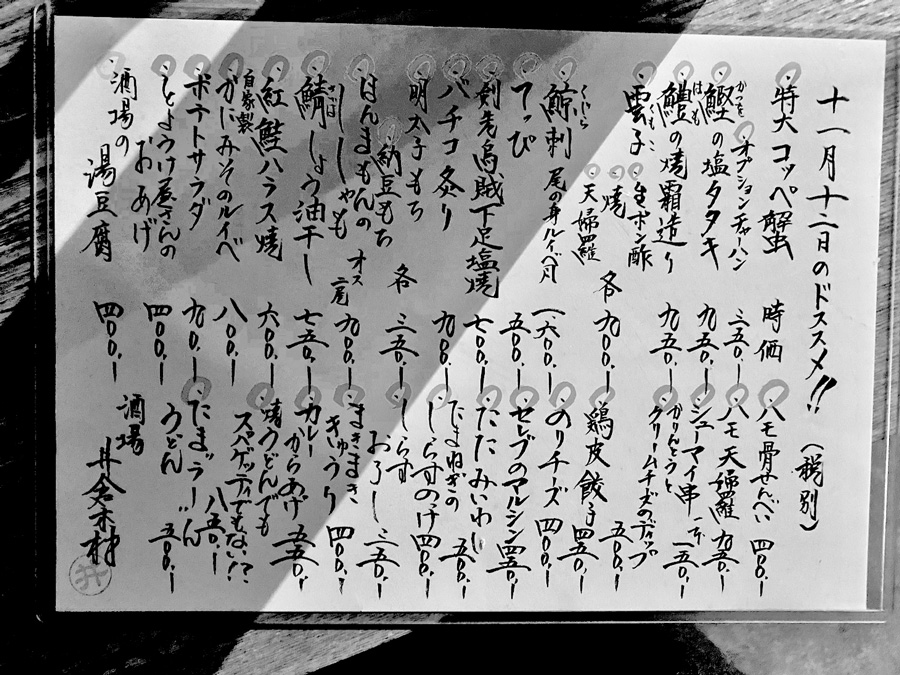 十一月十二日のドススメ!! (税別)
特大コッペ蟹 時価
オプションチャーハン 三五〇.ー
鰹の塩タタキ 九五〇.ー
かつを
鱧の焼霜造り 九五〇.ー
はも
雲子 生ポン酢
くもこ
焼 各 九〇〇.ー
天婦羅
鯨刺 尾の身ルイベ 一六〇〇.ー
くじら
てっぴ 五〇〇.ー
剣先烏賊下足塩焼 七〇〇.ー
バチコ炙り 九〇〇.ー
明太子もち 各 三五〇.ー
納豆もち
ほんまもんの
ししゃも オス 二尾 九〇〇.ー
鯖しょう油干し 七五〇.ー
さば
紅鮭ハラス焼 六〇〇.ー
自家製
かにみそのルイベ 八〇〇.ー
ポテトサラダ 九〇〇.ー
とようけ屋さんの
おあげ 四〇〇.ー
酒場の湯豆腐 四〇〇.ー
ハモ骨せんべい 四〇〇.ー
ハモ天婦羅 九五〇.ー
シューマイ串 一本 一五〇.ー
かりんとうと
クリームチーズのディップ 五〇〇.ー
鶏皮餃子 四五〇.ー
のりチーズ 四〇〇.ー
セレブのマルシン 四五〇.ー
たたみいわし
たまねぎの 五〇.ー
しらすのっけ 四〇〇.ー
しらす
おろし 三五〇.ー
まきまき
きゅうり 四〇〇.ー
カレー
からあげ 五五〇.ー
焼うどんでも
スパゲッティでもない!?
八五〇.ー
うどん 五〇.ー
酒場 井倉木材
井